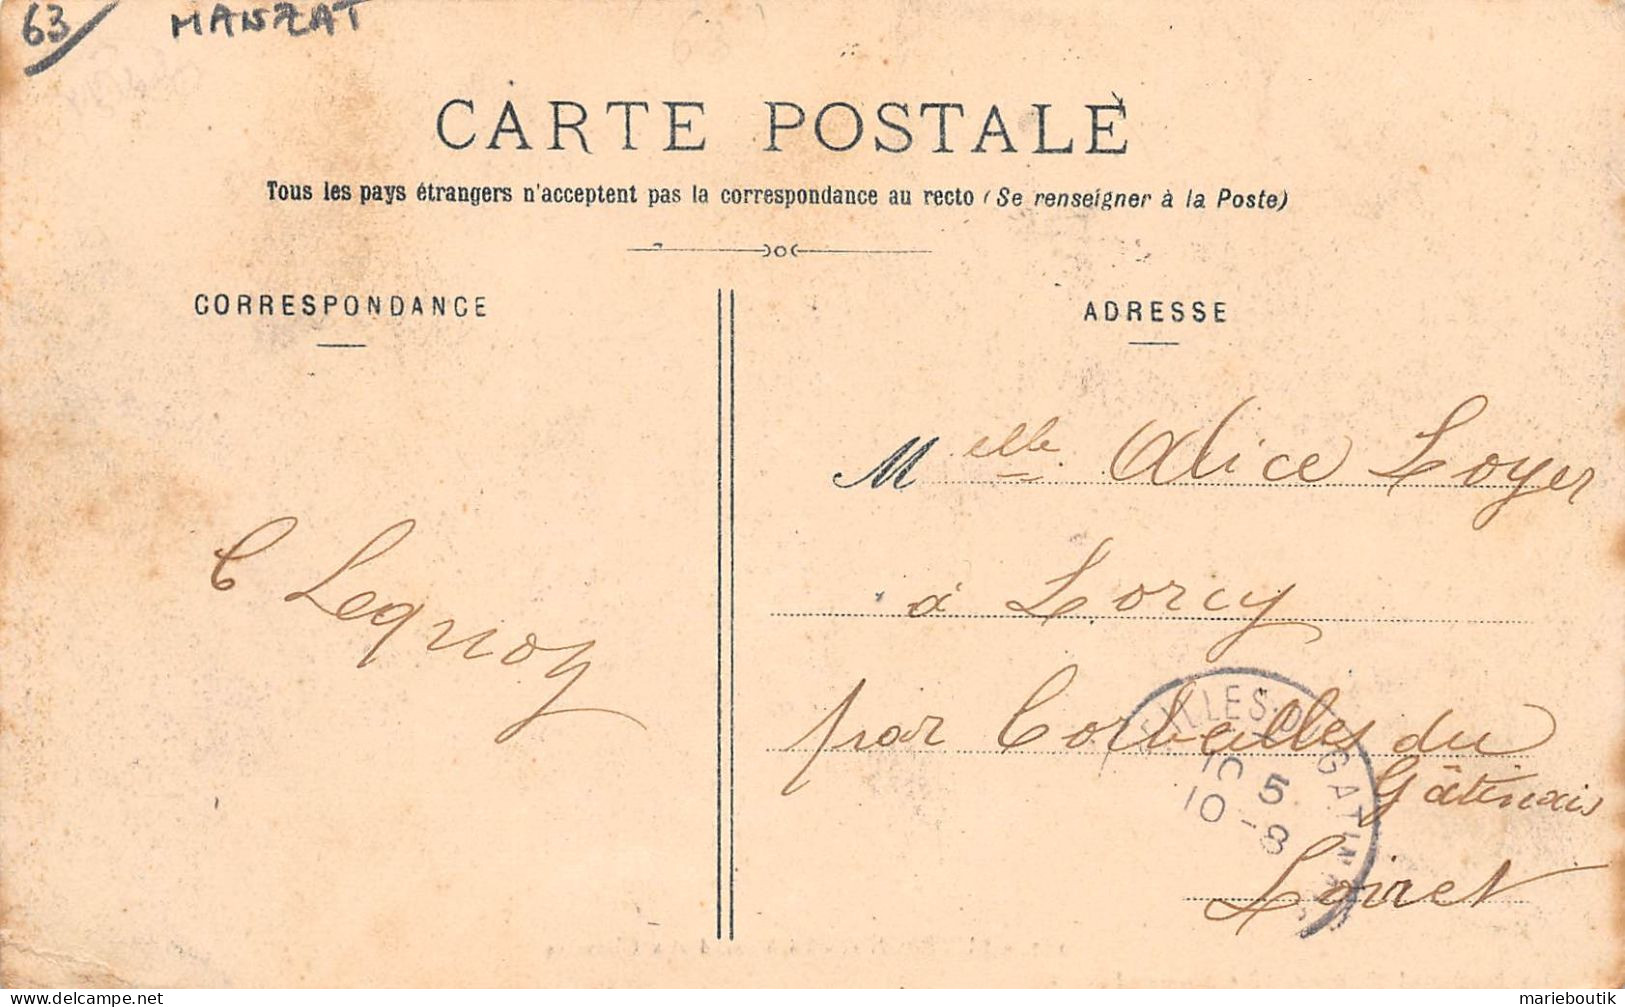 63 MANZAT
CARTE POSTALE
Tous les pays étrangers n'acceptent pas la correspondance au recto (Se renseigner à la Poste)
CORRESPONDANCE
ADRESSE
Melle Alice Loyer
à Lorcy
par Corbeilles du
Gâtinais
Loiret
C Lequoy
EILLES-DU-GATINAIS
10 5
10 -8
marieboutik